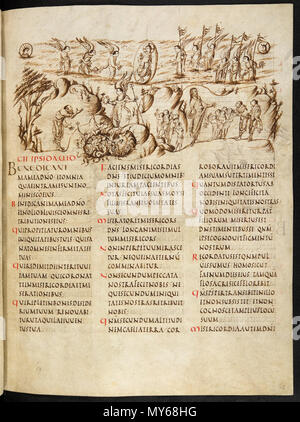 CII IPSI DAVID
BENEDICANI
MAMEADNOETOMNIA
QUAEINTRAMESUNTNO
MINISCOEIUS
BENEDICANIMAMEADNO
ETNOLIOBLIUISCIOMNESRE
TRIBUTIONESEIUS
QUIPROPITIATUROMNIBUS
INIQUITATIBUSTUISQUISA
NATOMNESINFIRMITATES
TUAS
QUIREDIMITDEINTERITUUI
TAMTUAMQUICORONAT
TEINMISERICORDIAETMI
SERATIONIBUS
QUIREPLETINBONISDESIDE
RIUMTUUMRENOUABI
TURUTAQUILAEIUUEN
TUSTUA
FACIENSMISERICORDIAS
DNSETIUDICIUMOMNIB;
INIURIAMPATIENTIB;
NOTASFECITUIASSUASMO
TATESSUAS
MISERATORETMISERICORS
DNSLONGANIMISETMUL
TUMMISERICORS
NONINPERPETUUMIRASCE
TURNEQUEINAETERNU
COMMINABITUR
NONSECUNDUMPECCATA
NOSTRAFECITNOBISNE
QUESECUNDUMINIQUI
TATESNOSTRASRETRIBU
ITNOBIS
QNMSECUNDUMALTITUDI
NEMCAELIATERRACOR
ROBORAUITMISERICORDI
AMSUAMSUPERTIMENTESSE
QUANTUMDISTATORTUSAB
OCCIDENTELONGEFECITA
NOBISINIQUITATESNRAS
QUOMODOMISERETURPA
TERFILIORUMMISERTUS
ESTDNSTIMENTIBUSSE
NOSTRUM
RECORDATUSESTQNMPUL
UISSUMUSHOMOSICUT
FAENUMDIESEIUSTAMQUA
FLOSAGRISICEFFLOREBIT
QNMSPSPERTRANSIBITINILLO
ETNONSUBSISTETETNON
COGNOSCETAMPLIUSLOCUM
SUUM
MISERICORDIAAUTEMDNI
alamy
MY68HG